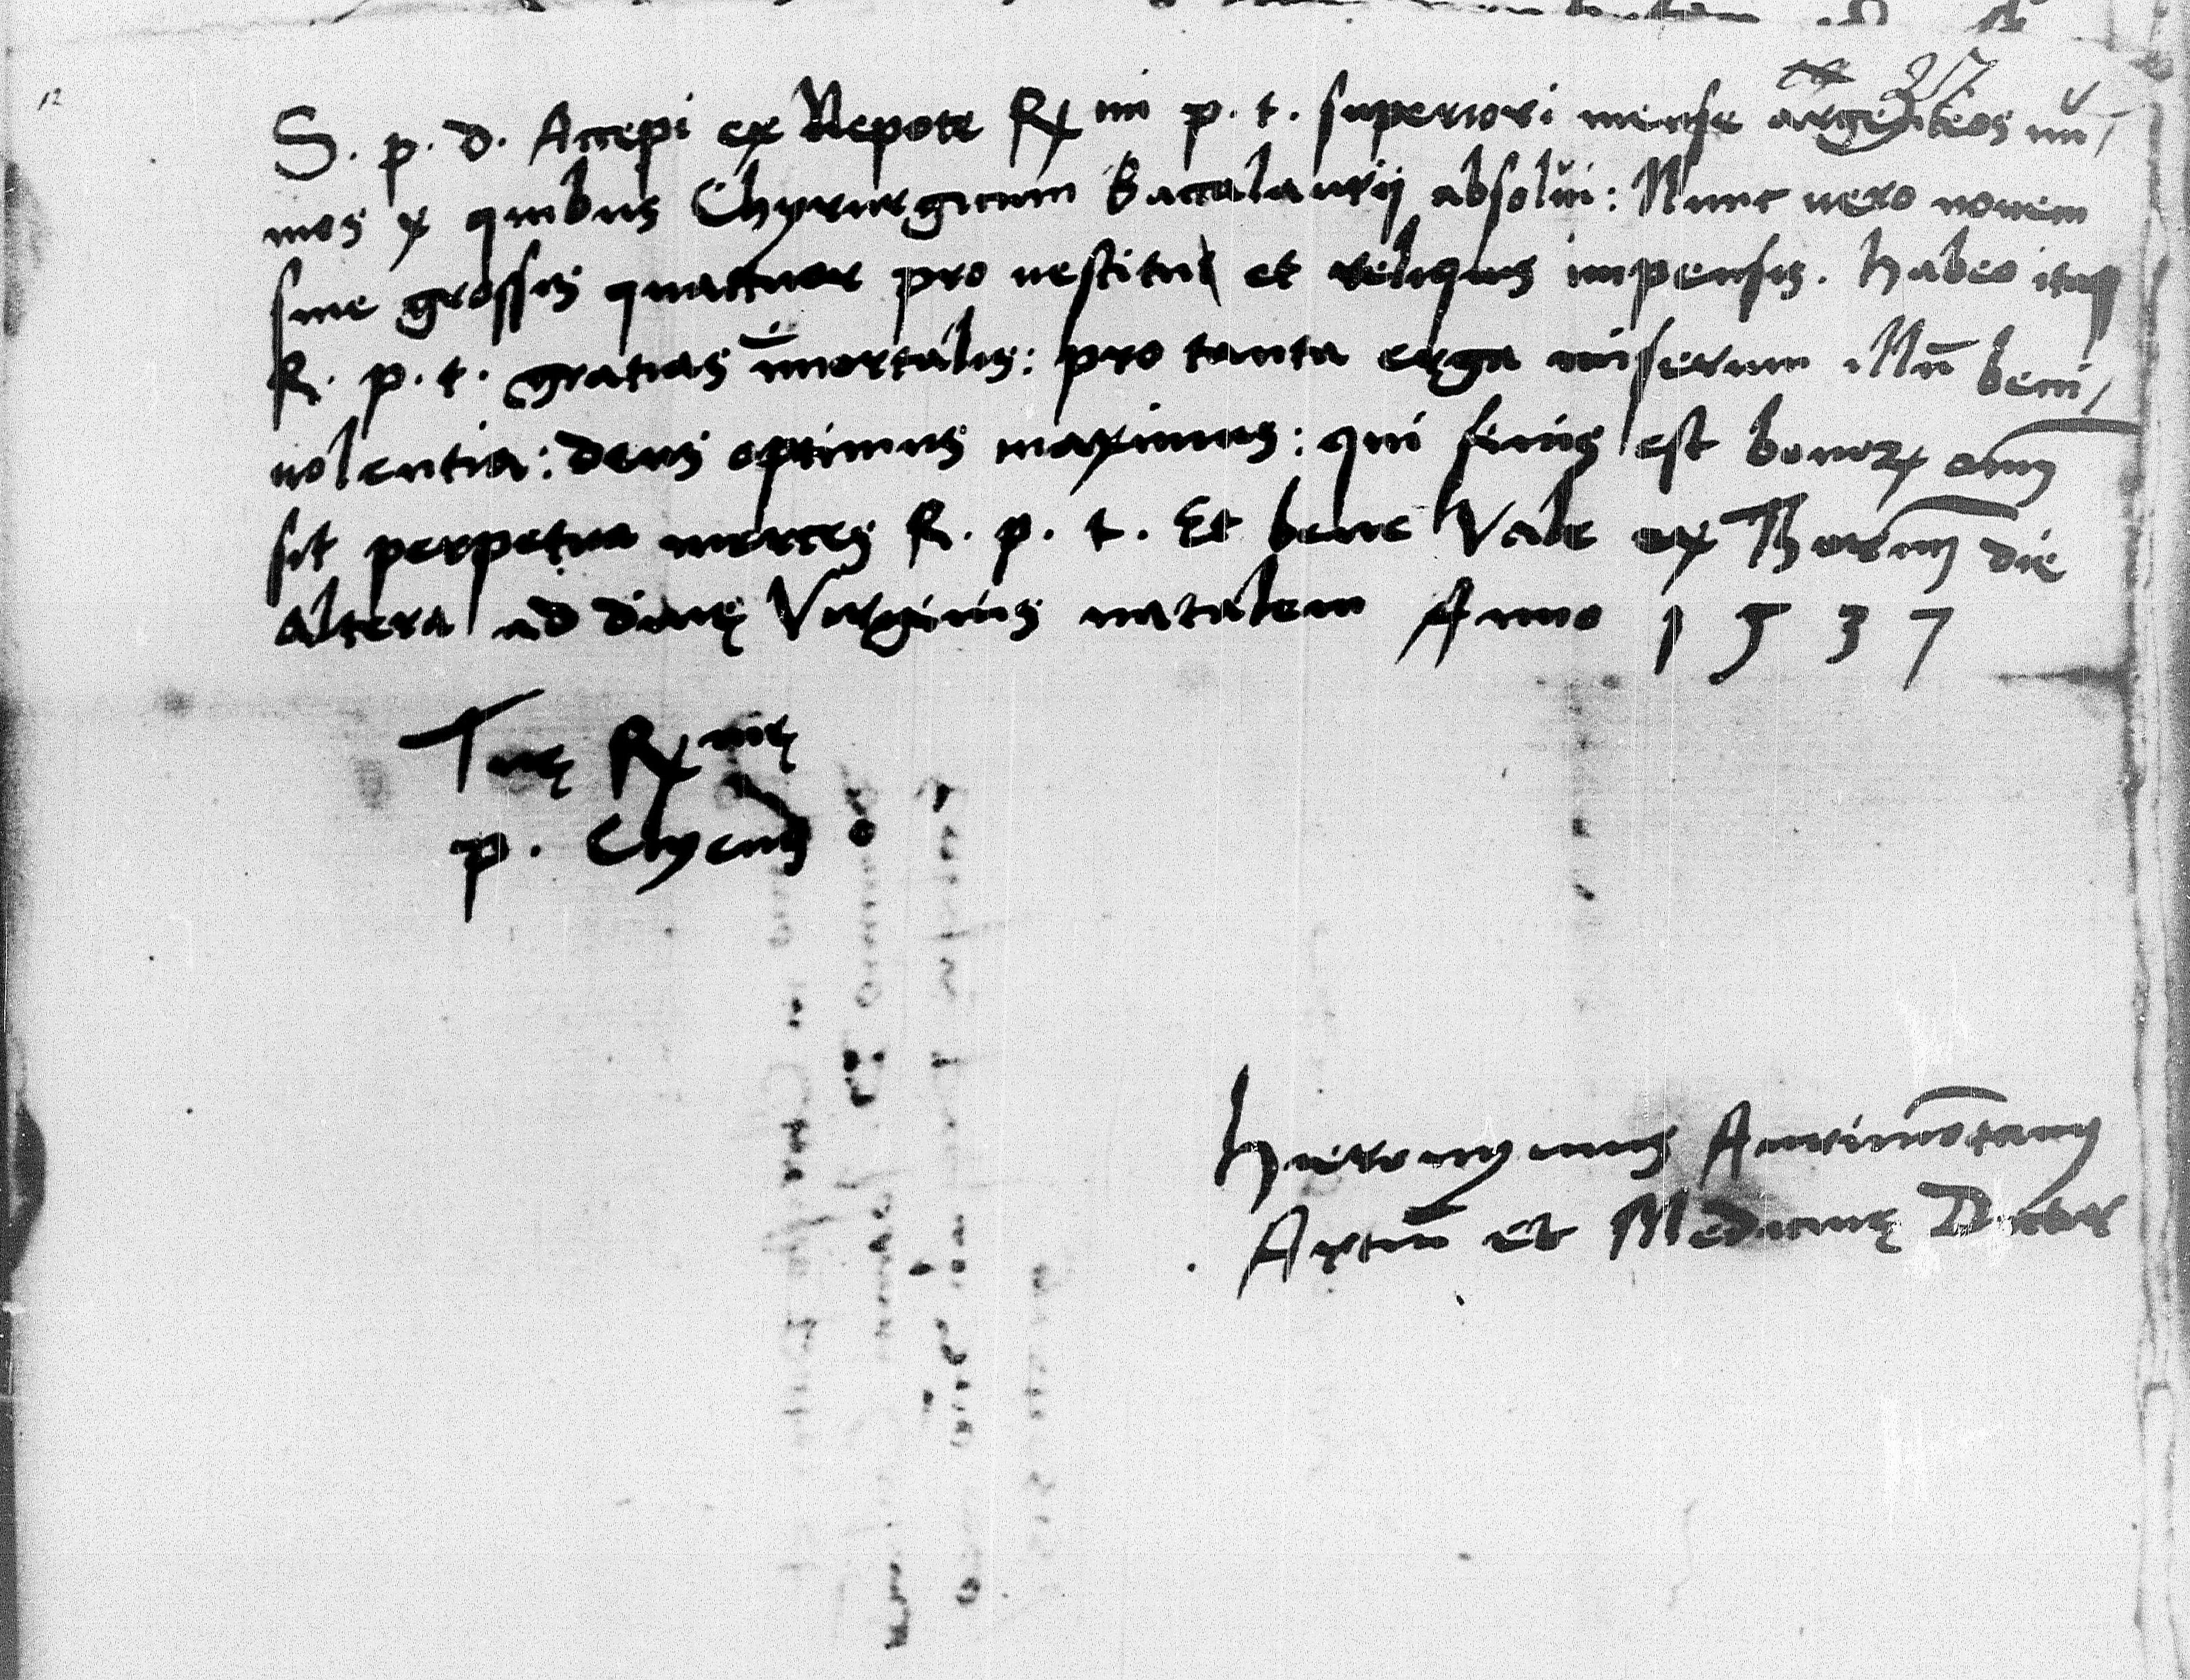 12
217
S. p. d. Accepi ex Nepote Rx mi p. t. superiori mense argenteos nū/
mos x quibus Chyrurgicum Baccalaurij absolui: Nunc uero nouem
sine grossis quattuor pro uestitu et reliquis impensis. Habeo itaq
R. p. t. gratias īmortalis: pro tanta erga miserum illū beni/
uolentia: deus optimus maximus: qui finis est bonorx om̄
sit perpetua merces R. p. t. Et bene Vale ex Thorun̄ die
altera ad diuę Virginis natalem Anno 1537
Tuę Rx mę
p. Clyens
Hieronymus Aurimōtanus
Artiū et Medicinę Doctor